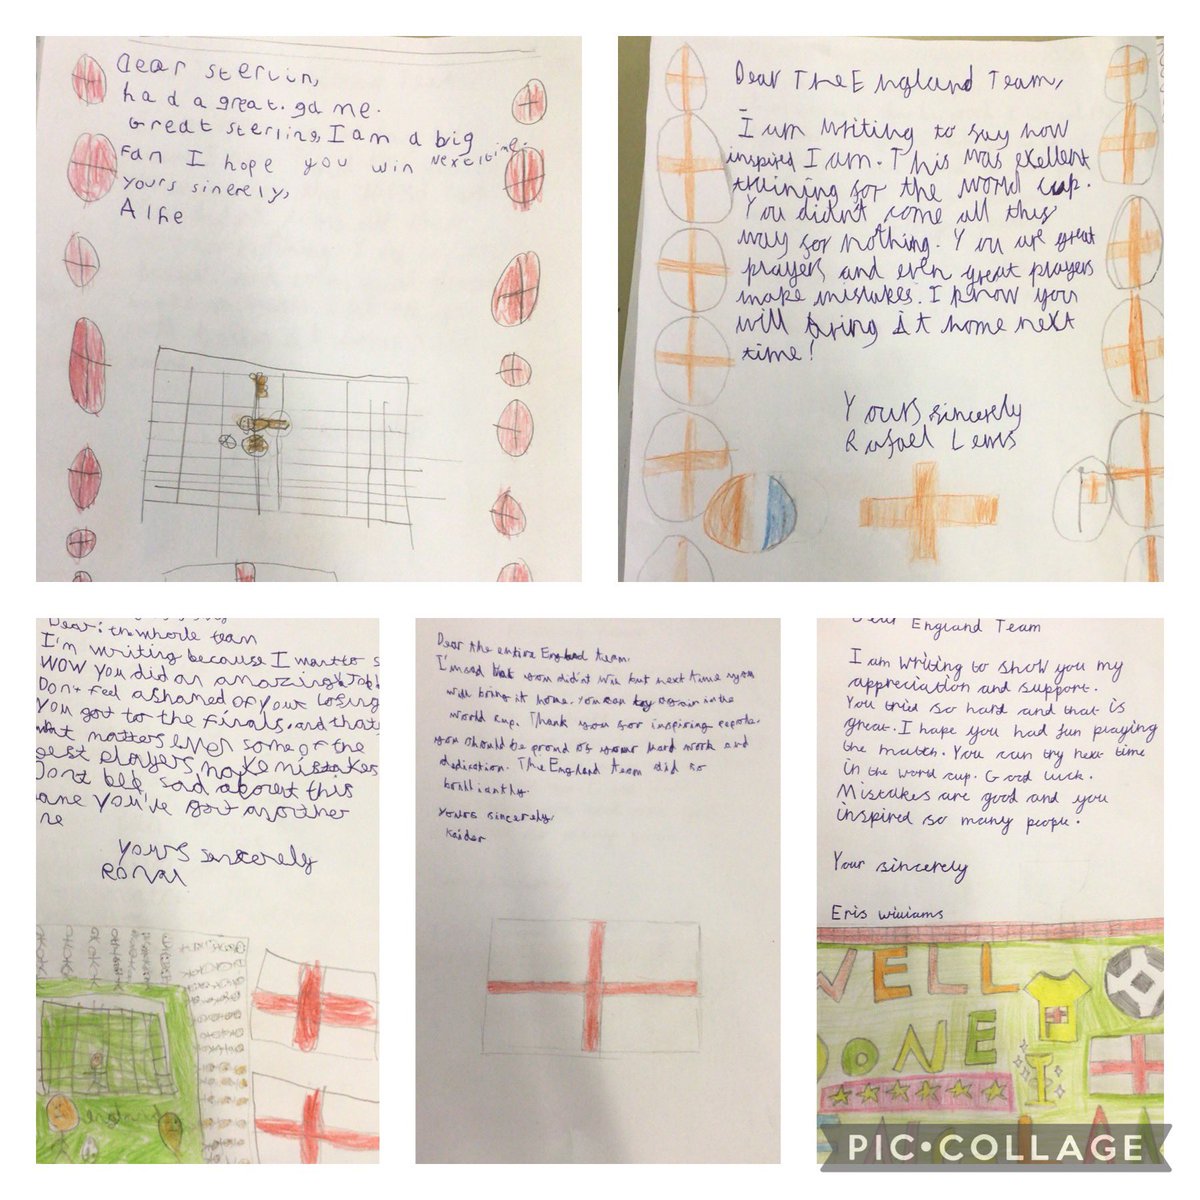 Dear sterlin,
had a great. game.
Great sterling, I am a big
Fan I hope you win Next time.
Yours sincerely,
Alfie
Dear The England Team,
I am writing to say how
inspired I am. This was exellent
training for the world cup.
You didn't come all this
way for nothing. You are great
prayers and even great prayers
make mistakes. I know you
will bring it home next
time!
Yours sincerely
Rafael Lewis
Dear: the whole team
I'm writing because I want to s
WOW you did an amazing Job!
Don't feel ashamed of your losing
you got to the finals. and that
matters even some of the
est players make mistakes
Dont be sad about this
ane you've got another
me
yours sincerely
Ronan
Dear the entire England team.
I'm sad that you didn't win but next time
will bring it home. You can try again in the
world cup. Thank you for inspiring
you should be proud of your hard work and
dedication. The England team did so
brilliantly.
yours sincerely.
Kaider
Dear England Team
I am writing to show you my
appreciation and support.
You tried so hard and that is
great. I hope you had fun praying
the match. You can try next time
in the world cup. Good luck.
Mistakes are good and you
inspired so many people.
Your sincerely
Eris Williams
WELL
DONE
ENGLAN
PIC•COLLAGE